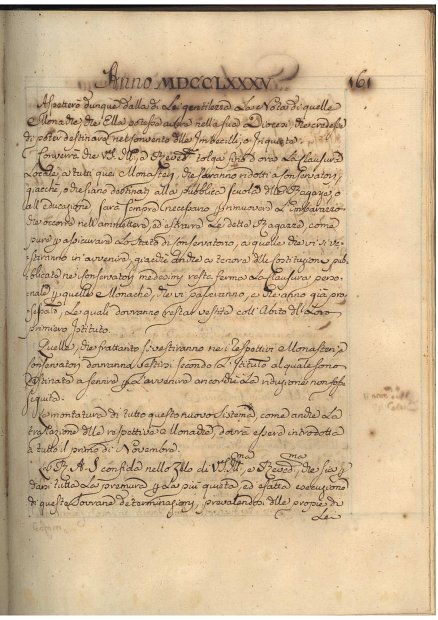 Anno MDCCLXXXV. 161
Aspetterò dunque dalla di Lei gentilezza La Nota di quelle
Monache, che Ella potesse avere nella sua Diocesi, che credesse
di poter destinare nel Convento delle Imbecilli, o Inquiete.
Converrà che VS. Ill. e Rev. tolga fino d'ora La Clausura
Locale a tutti quei Monasteri, che saranno ridotti a Conservatori,
giacchè, o che siano destinati alla pubblica scuola delle Ragazze, o
all'Educazione sarà sempre necessario rimuovere L'imbarazzo
che occorre nell'ammettere, ed estrarre Le dette Ragazze come
pure p assicurare Lo Stato di Conservatorio, a quelle che vi si ve-
stiranno in avvenire, giacchè anche a tenore delle Costituzioni pub-
blicate nei Conservatori medesimi resta ferma La Clausura perso-
nale p quelle Monache, che vi passeranno, e che erano già pro-
fessate, Le quali dovranno restar vestite coll'Abito del Loro
primiero Istituto.
Quelle, che frattanto si vestiranno nei respettivi Monasteri, e
Conservatori dovranno vestirsi secondo L'Istituto al quale sono
destinate a servire p L'avvenire ancorchè La riduzione non fosse
seguita.
La montatura di tutto questo nuovo Sistema come anche La
traslazione delle respettive Monache, dovrà essere introdotta
a tutto il primo di Novembre.
S. A. R. confida nello Zelo di VS. Ill.ma, e Rev.ma, che sia p
darsi tutta La premura p La più quieta, ed esatta esecuzione
di queste Sovrane determinazioni, prevalendosi delle proprie di
Lei